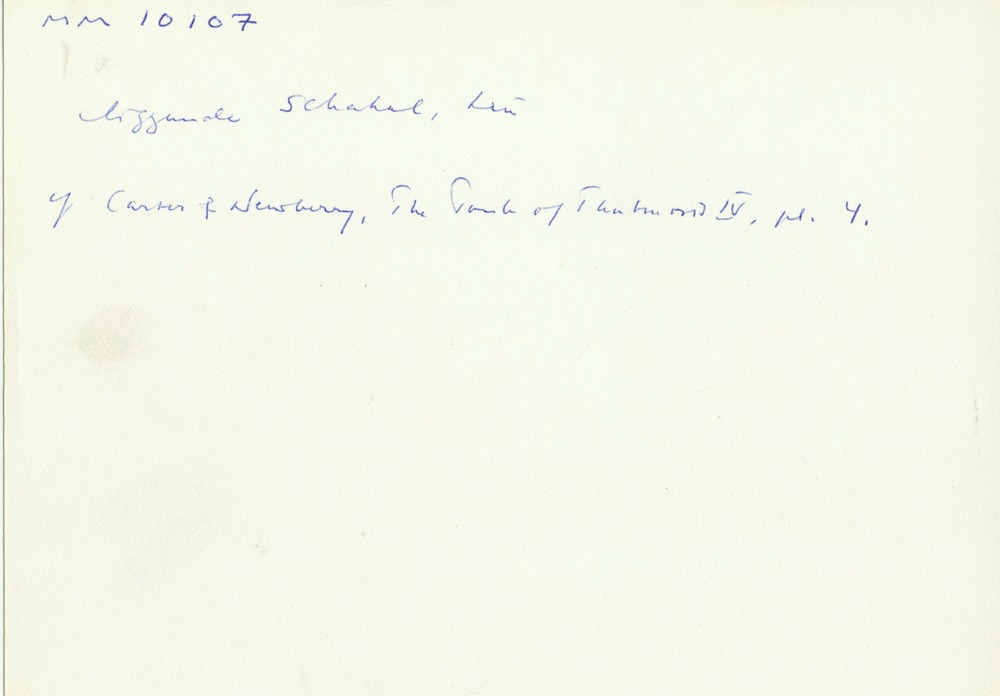 MM 10107
liggande Schakal, trä
cf Carter & Newberry, The Tomb of Thutmosis IV, pl. 4.